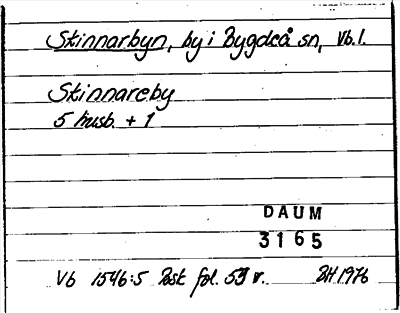 Skinnarbyn, by i Bygdeå sn, Vb.l.
Skinnareby
5 husb. + 1
DAUM
3165
Vb 1546:5 Besk fol. 53 v. BH 1976